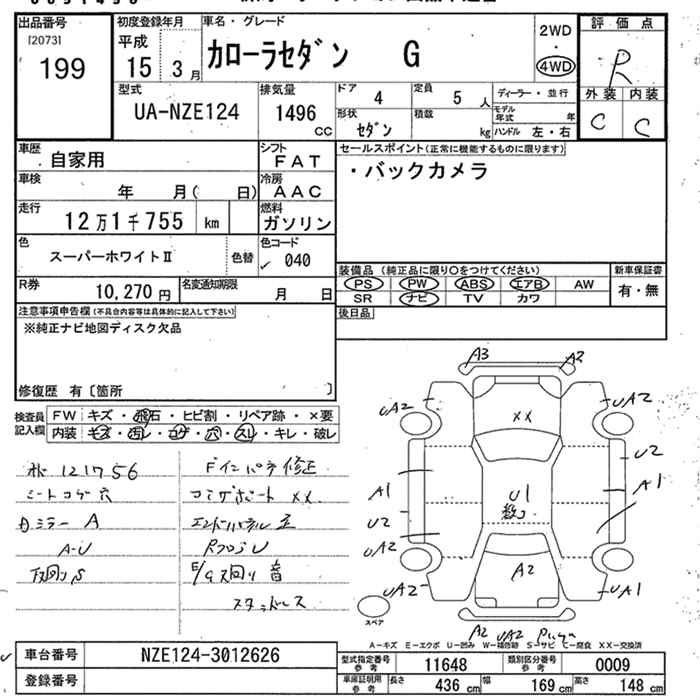 出品番号
[2073]
199
初度登録年月
平成
15 3月
車名・グレード
カローラセダン G
2WD
・
4WD
評価点
R
外装 内装
C C
型式
UA-NZE124
排気量
1496
CC
ドア 4
定員 5人
形状 セダン
積載 kg
ディーラー・並行
モデル年式 年
ハンドル 左・右
車歴
自家用
シフト
FAT
車検
年 月( 日)
冷房
AAC
走行
12万1千755 km
燃料
ガソリン
色
スーパーホワイトⅡ
色替
色コード
040
R券
10,270円
名変通知期限
月 日
セールスポイント(正常に機能するものに限ります)
・バックカメラ
装備品(純正品に限り○をつけてください)
PS PW ABS エアB AW
SR ナビ TV カワ
新車保証書
有・無
後日品
注意事項申告欄(不具合内容等は具体的に記入して下さい)
※純正ナビ地図ディスク欠品
修復歴 有〔箇所 〕
検査員
記入欄
FW キズ・飛石・ヒビ割・リペア跡・×要
内装 キズ・汚レ・コゲ・穴・スレ・キレ・破レ
121756
シートコゲ穴
ミラー A
A-U
下回りS
Fインパネ修正
コアサポート XX
エンドパネル
RフロアU
E/G 回り音
スタッドレス
A3 A2
UA2 UA2
XX
U2
A1 A1
U1
U2
UA2
A2
UA2 UA1
スペア
A2 UA2
A-キズ E-エクボ U-凹み W-補修跡 S-サビ C-腐食 XX-交換済
車台番号
NZE124-3012626
登録番号
型式指定番号
参考
11648
類別区分番号
参考
0009
車庫証明用
参考
長さ 436 cm 幅 169 cm 高さ 148 cm